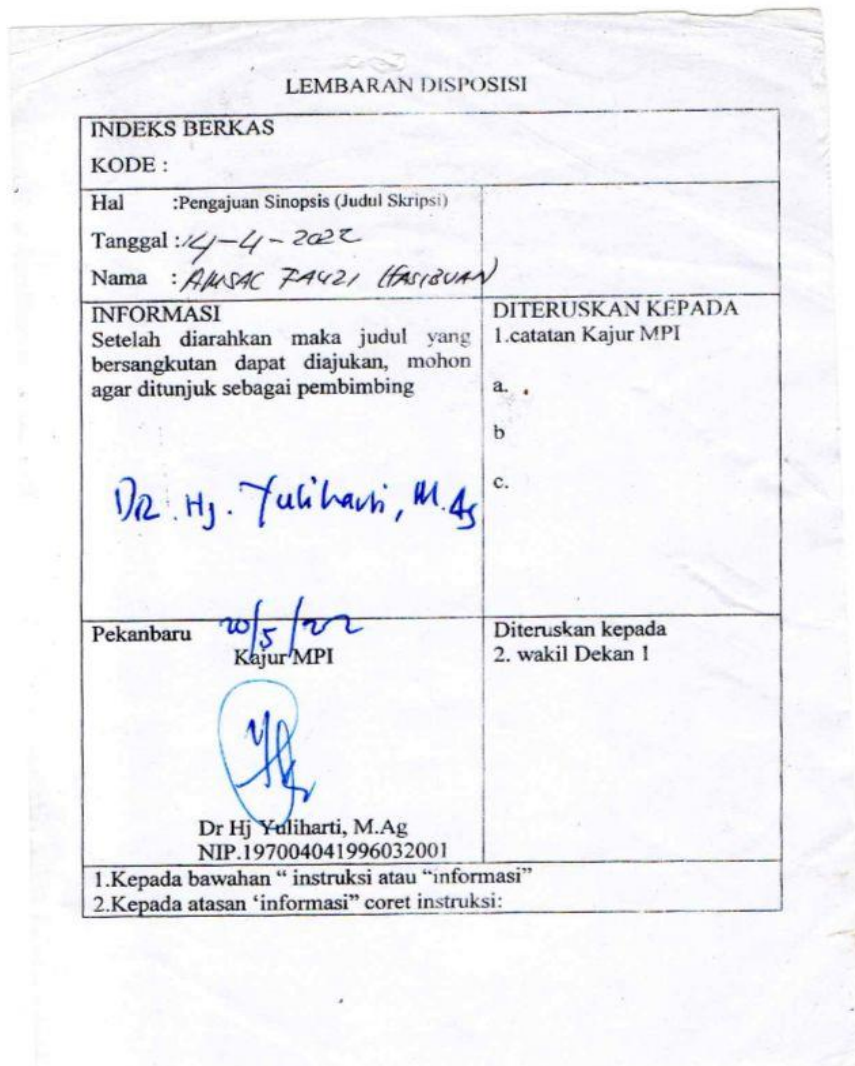 LEMBARAN DISPOSISI
INDEKS BERKAS
KODE :
Hal :Pengajuan Sinopsis (Judul Skripsi)
Tanggal : 14-4-2022
Nama : AMSAC FAUZI HASIBUAN
INFORMASI
Setelah diarahkan maka judul yang
bersangkutan dapat diajukan, mohon
agar ditunjuk sebagai pembimbing
DR. Hj. Yuliharti, M.Ag
DITERUSKAN KEPADA
1.catatan Kajur MPI
a.
b
c.
Pekanbaru 20/5/22
Kajur MPI
Dr Hj Yuliharti, M.Ag
NIP.197004041996032001
Diteruskan kepada
2. wakil Dekan 1
1.Kepada bawahan “ instruksi atau “informasi”
2.Kepada atasan ‘informasi” coret instruksi: